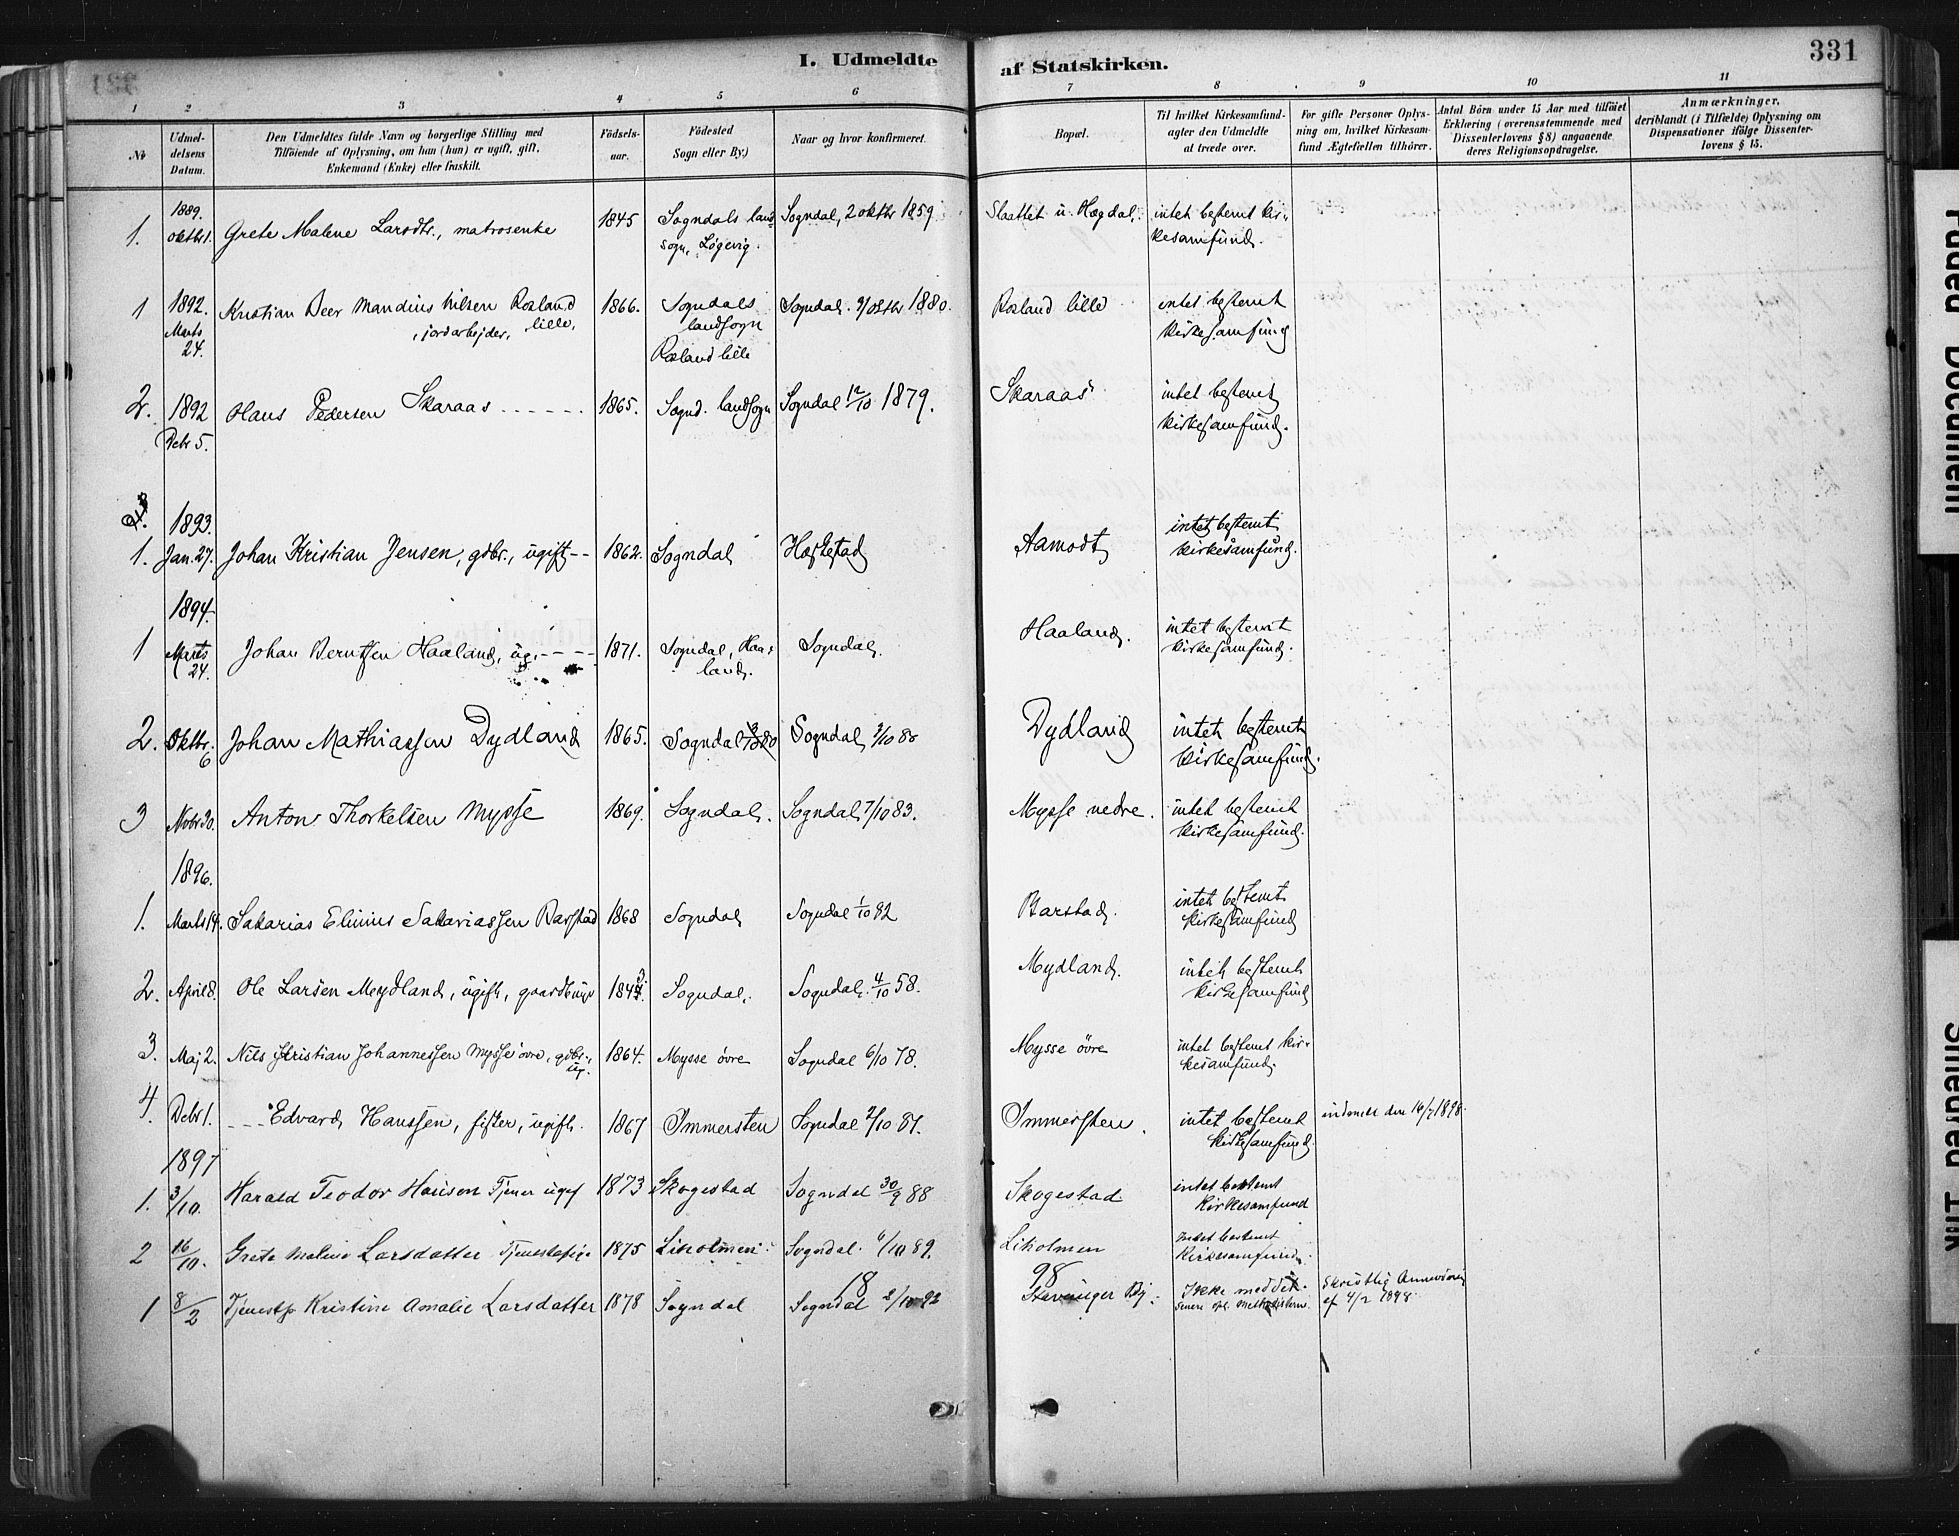 I. Udmeldte af Statskirken.
331
1 2 3 4 5 6 7 8 9 10 11
№
Udmeldelsens Datum.
Den Udmeldtes fulde Navn og borgerlige Stilling med
Tilföiende af Oplysning, om han (hun) er ugift, gift,
Enkemand (Enke) eller fraskilt.
Födselsaar.
Födested
Sogn eller By.)
Naar og hvor konfirmeret.
Bopæl.
Til hvilket Kirkesamfund-
agter den Udmeldte
at træde over.
For gifte Personer Oplys-
ning om, hvilket Kirkesam-
fund Ægtefællen tilhörer.
Antal Börn under 15 Aar med tilföiet
Erklæring (overensstemmende med
Dissenterlovens §8) angaaende
deres Religionsopdragelse.
Anmærkninger,
deriblandt (i Tilfælde) Oplysning om
Dispensationer ifölge Dissenter-
lovens § 15.
1889.
1. oktbr 1. Grete Malene Larsdtr., matrosenke 1845 Sogndals land- Sogndal, 2 oktbr 1859. Slaattet u. Hægdal. intet bestemt kir-
sogn, Løgevig. kesamfund.
1 1892. Kristian Peer Mandius Nilsen Røsland 1866. Sogndals Sogndal. 9/oktbr 1880. Røsland lille intet bestemt
Marts , jordarbejder, lille, landsogn kirkesamfund
24. Røsland lille
2. 1892 Hans Pedersen Skaraas 1865. Sognd. landsogn Sogndal 12/10 1879. Skaraas intet bestemt
Debr 5. kirkesamfund.
1893.
1. Jan. 27. Johan Kristian Jensen, gdbr., ugift 1862. Sogndal Heskestad Aamodt intet bestemt
kirkesamfund.
1894.
1 Marts Johan Berntsen Haaland, ug. 1871. Sogndal, Haa- Sogndal. Haaland. intet bestemt
24. land. kirkesamfund.
2. Oktbr. Johan Mathiassen Dydland 1865. Sogndal Sogndal Dydland intet bestemt
6 kirkesamfund.
3 Nobr 30. Anton Thorkelsen Mysse 1869. Sogndal. Sogndal 7/10 83. Mysse nedre. intet bestemt
kirkesamfund.
1896.
1. Marts 14. Sakarias Elinius Sakariassen Barstad 1868 Sogndal Sogndal 1/10 82 Barstad. intet bestemt
kirkesamfund
2. April 8. Ole Larsen Mydland, ugift, gaardbruger 1843 Sogndal. Sogndal. 4/10 58. Mydland. intet bestemt
kirkesamfund
3. Maj 2. Nils Kristian Johannessen Mysse øvre, gdbr., 1864. Mysse øvre Sogndal 6/10 78. Mysse øvre intet bestemt kir-
ug. kesamfund.
4. Debr 1. Edvard Hanssen, fisker, ugift. 1867 Immersten Sogndal 2/10 81. Immersten. intet bestemt indmeldt den 16/7 1898.
kirkesamfund.
1897
1. 3/10. Harald Teodor Hansen Tjener ugift 1873 Skogestad Sogndal 30/9 88 Skogestad intet bestemt
kirkesamfund
2 16/10. Grete Maline Larsdatter Tjenestepige 1875 Liholmen Sogndal. 6/10 89. Liholmen intet bestemt
kirkesamfund.
18 98
1 8/2 Tjenestp Kristine Amalie Larsdatter 1878 Sogndal Sogndal 2/10 92 Stavanger By. Ikke meddelt. Skriftlig
senere opl. Methodisterne. af 4/2 1898
Faded Document
Smeared Ink